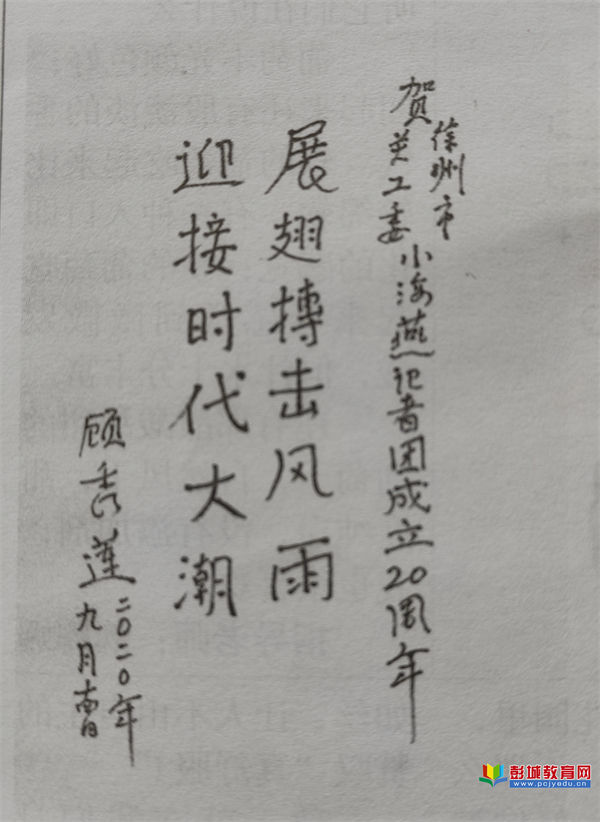 贺
徐州市
关工委
小海燕记者团成立20周年
展翅搏击风雨
迎接时代大潮
顾秀莲
二〇二〇年
九月
彭城教育网